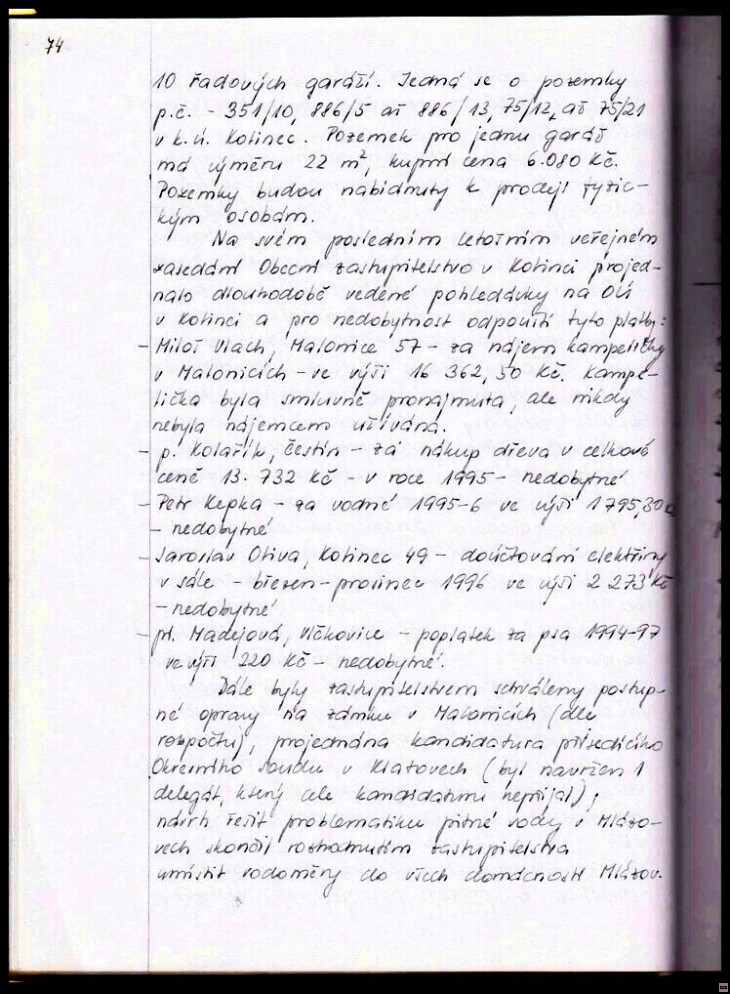 74
10 řadových garáží. Jedná se o pozemky
p.č. - 351/10, 886/5 až 886/13, 75/12, až 75/21
v k.ú. Kolinec. Pozemek pro jednu garáž
má výměru 22 m², kupní cena 6.080 Kč.
Pozemky budou nabídnuty k prodeji fyzic-
kým osobám.
Na svém posledním letošním veřejném
zasedání Obecní zastupitelstvo v Kolinci projed-
nalo dlouhodobě vedené pohledávky na OÚ
v Kolinci a pro nedobytnost odpouští tyto platby:
- Miloš Vlach, Malonice 57 - za nájem kampeličky
v Malonicích - ve výši 16 362,50 Kč. Kampe-
lička byla smluvně pronajmuta, ale nikdy
nebyla nájemcem užívána.
- p. Kolařík, Čestín - za nákup dřeva v celkové
ceně 13.732 Kč - v roce 1995 - nedobytné
- Petr Kepka - za vodné 1995-6 ve výši 1 795,30
- nedobytné
- Jaroslav Oliva, Kolinec 49 - doúčtování elektřiny
v sále - březen - prosinec 1996 ve výši 2 273 Kč
- nedobytné
- pí. Madejová, Vlčkovice - poplatek za psa 1994-97
ve výši 220 Kč - nedobytné.
Dále byly zastupitelstvem schváleny postup-
né opravy na zámku v Malonicích (dle
rozpočtu), projednána kandidatura přísedícího
Okresního soudu v Klatovech (byl navržen 1
delegát, který ale kandidaturu nepřijal);
návrh řešit problematiku pitné vody v Mlázo-
vech skončil rozhodnutím zastupitelstva
umístit vodoměry do všech domácností Mlázov.